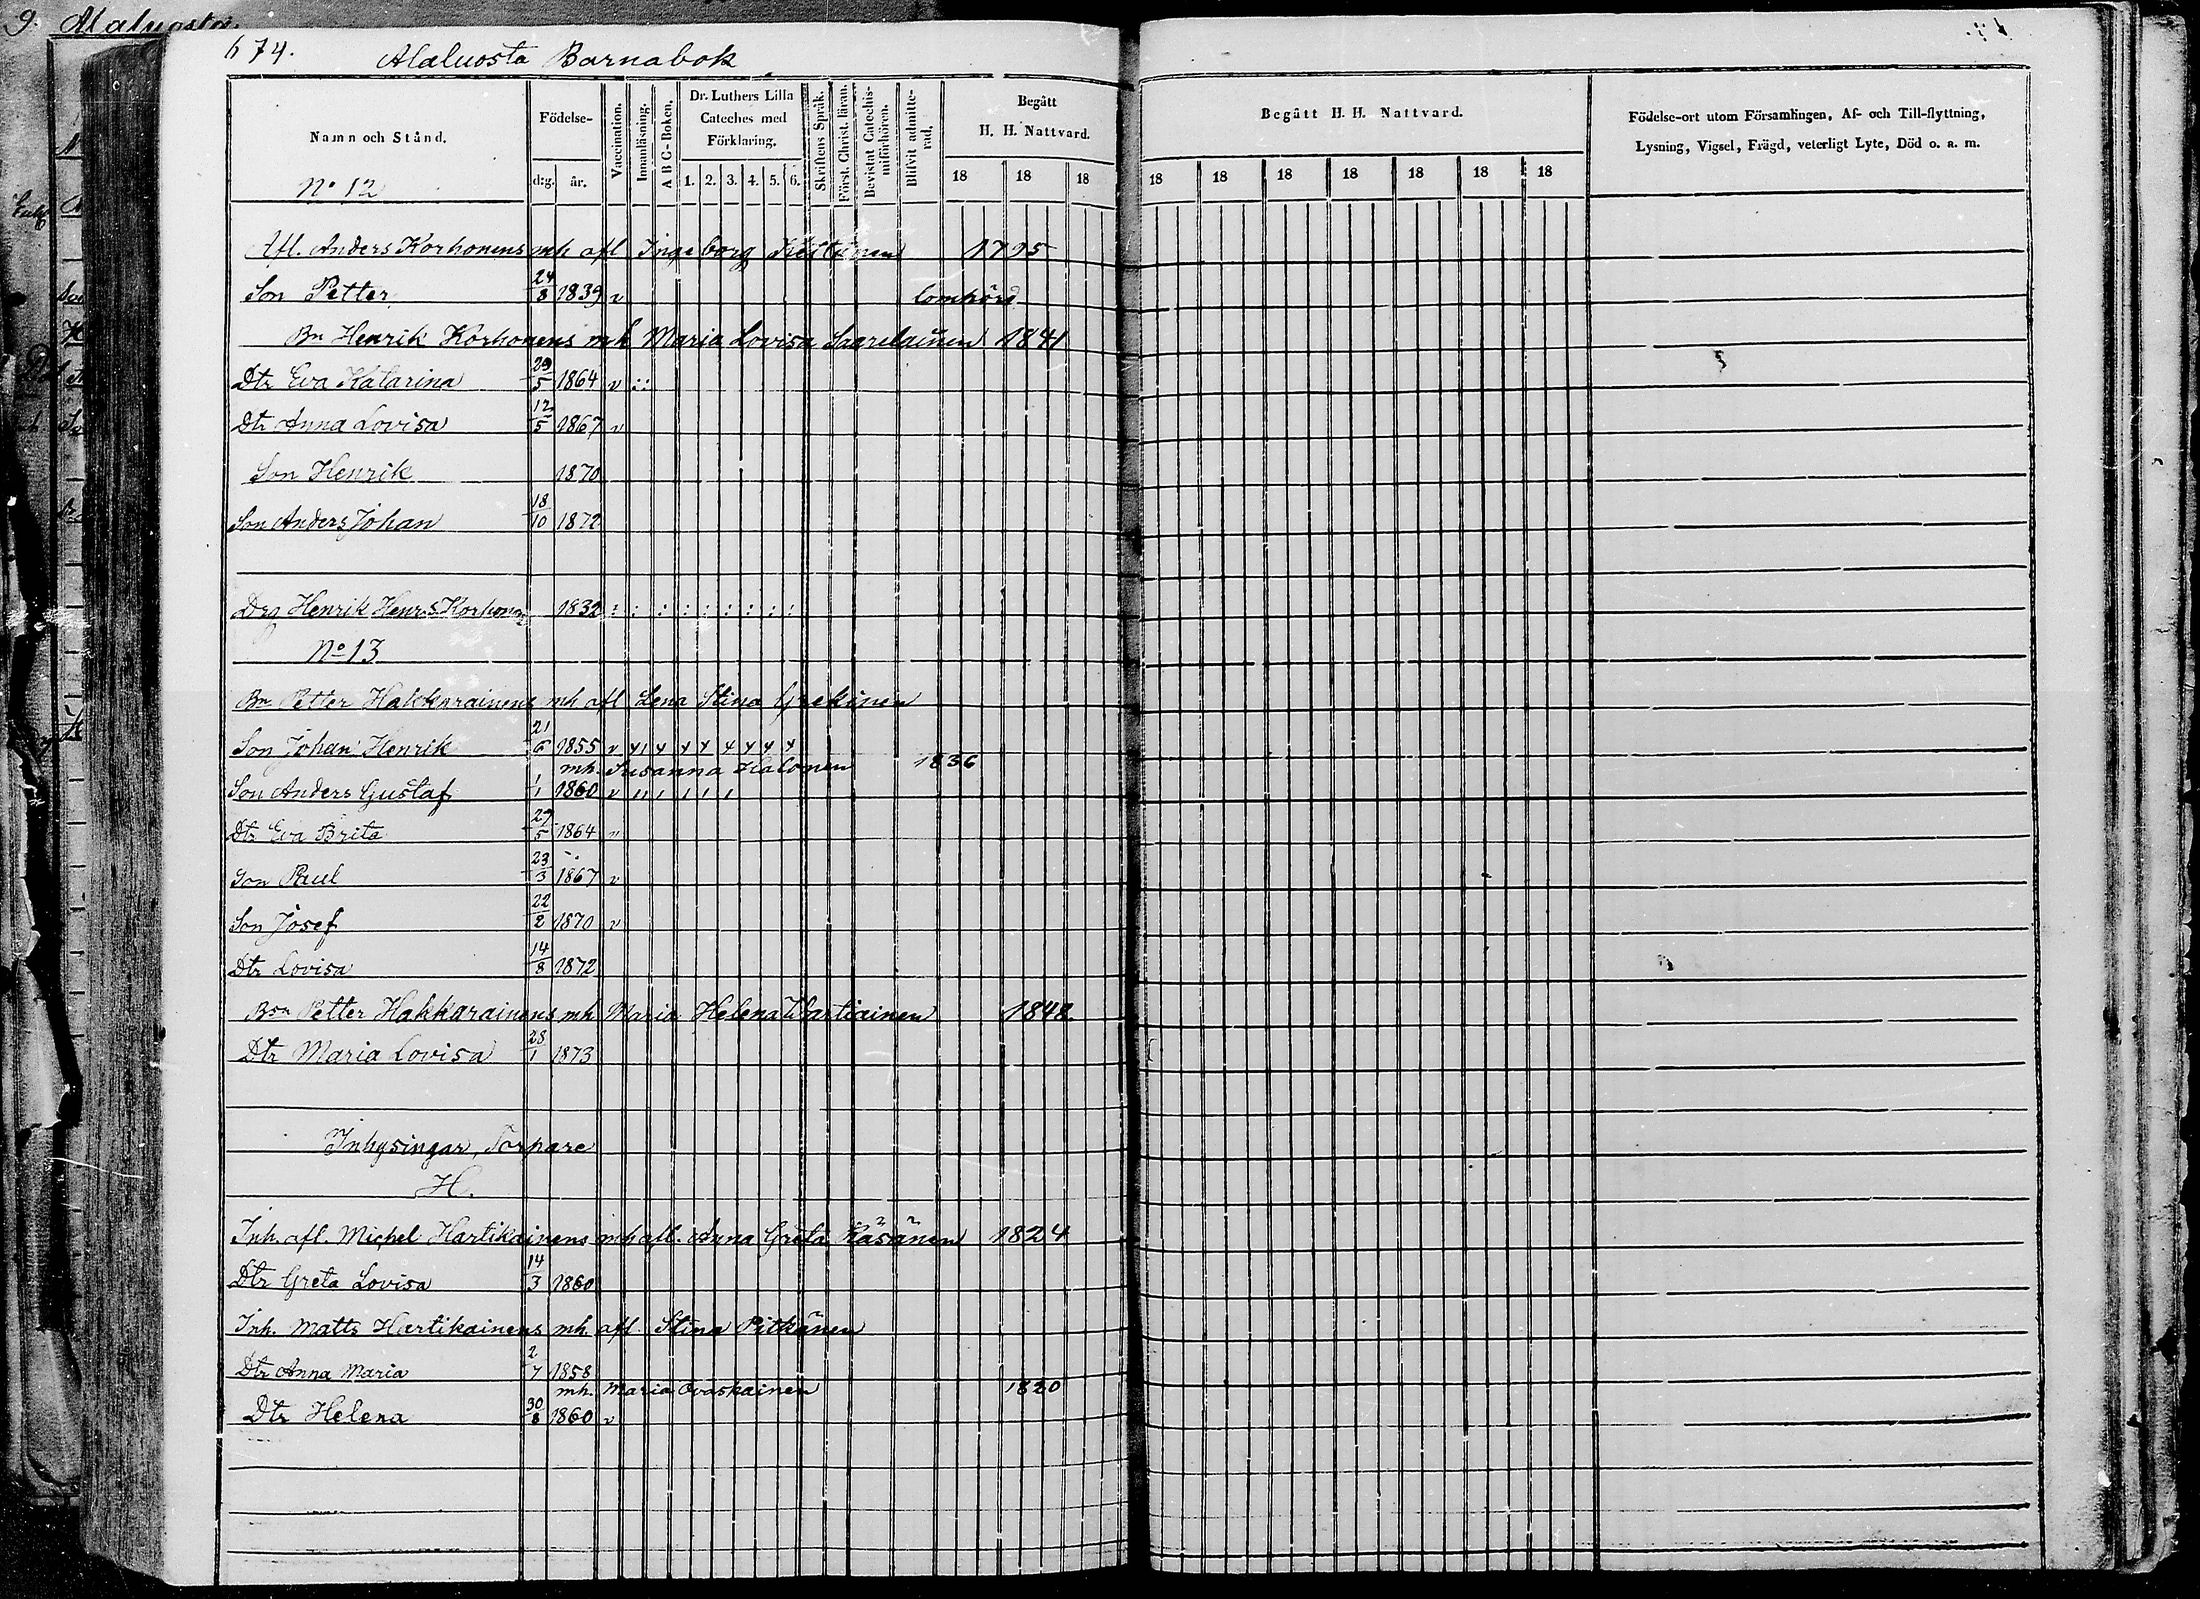 9. Alaluosta
674.
Alaluosta Barnabok
Namn och Stånd.
Födelse-
d:g. år.
Vaccination.
Innanläsning.
A B C-Boken.
Dr. Luthers Lilla Cateches med Förklaring.
1. 2. 3. 4. 5. 6.
Skriftens Språk.
Först. Christ. läran.
Bevistat Catechismiförhören.
Blifvit admitterad,
Begått H. H. Nattvard.
18 18 18
Begått H. H. Nattvard.
18 18 18 18 18 18 18
Födelse-ort utom Församlingen, Af- och Till-flyttning,
Lysning, Vigsel, Frägd, veterligt Lyte, Död o. a. m.
No 12
Afl. Anders Korhonens mh afl Ingeborg 1795
Son Petter 24/8 1839 v lomhörd
Bn Henrik Korhonens mh Maria Lovisa Saarelainen 1841
Dtr Eva Katarina 29/5 1864 v ::
Dtr Anna Lovisa 12/5 1867 v
Son Henrik 1870
Son Anders Johan 18/10 1872
Drg Henrik Henrs Korhonen 1832 : : : : : : : : :
No 13
Bn Petter Hakkarainens mh afl Lena Stina
Son Johan Henrik 21/6 1855 v
mh. Susanna Halonen 1836
Son Anders Gustaf 1/1 1860 v
Dtr Eva Brita 29/5 1864 v
Son Paul 23/3 1867 v
Son Josef 22/2 1870 v
Dtr Lovisa 14/8 1872
Bsn Petter Hakkarainens mh Maria Helena Wartiainen 1848
Dtr Maria Lovisa 28/1 1873
Inhysingar, Torpare
H.
Inh. afl. Michel Hartikainens mh afl. Anna Greta Räsänen 1824
Dtr Greta Lovisa 14/3 1860
Inh. Matts Hartikainens mh afl. Stina Pitkänen
Dtr Anna Maria 2/7 1858
mh. Maria Ovaskainen 1820
Dtr Helena 30/8 1860 v